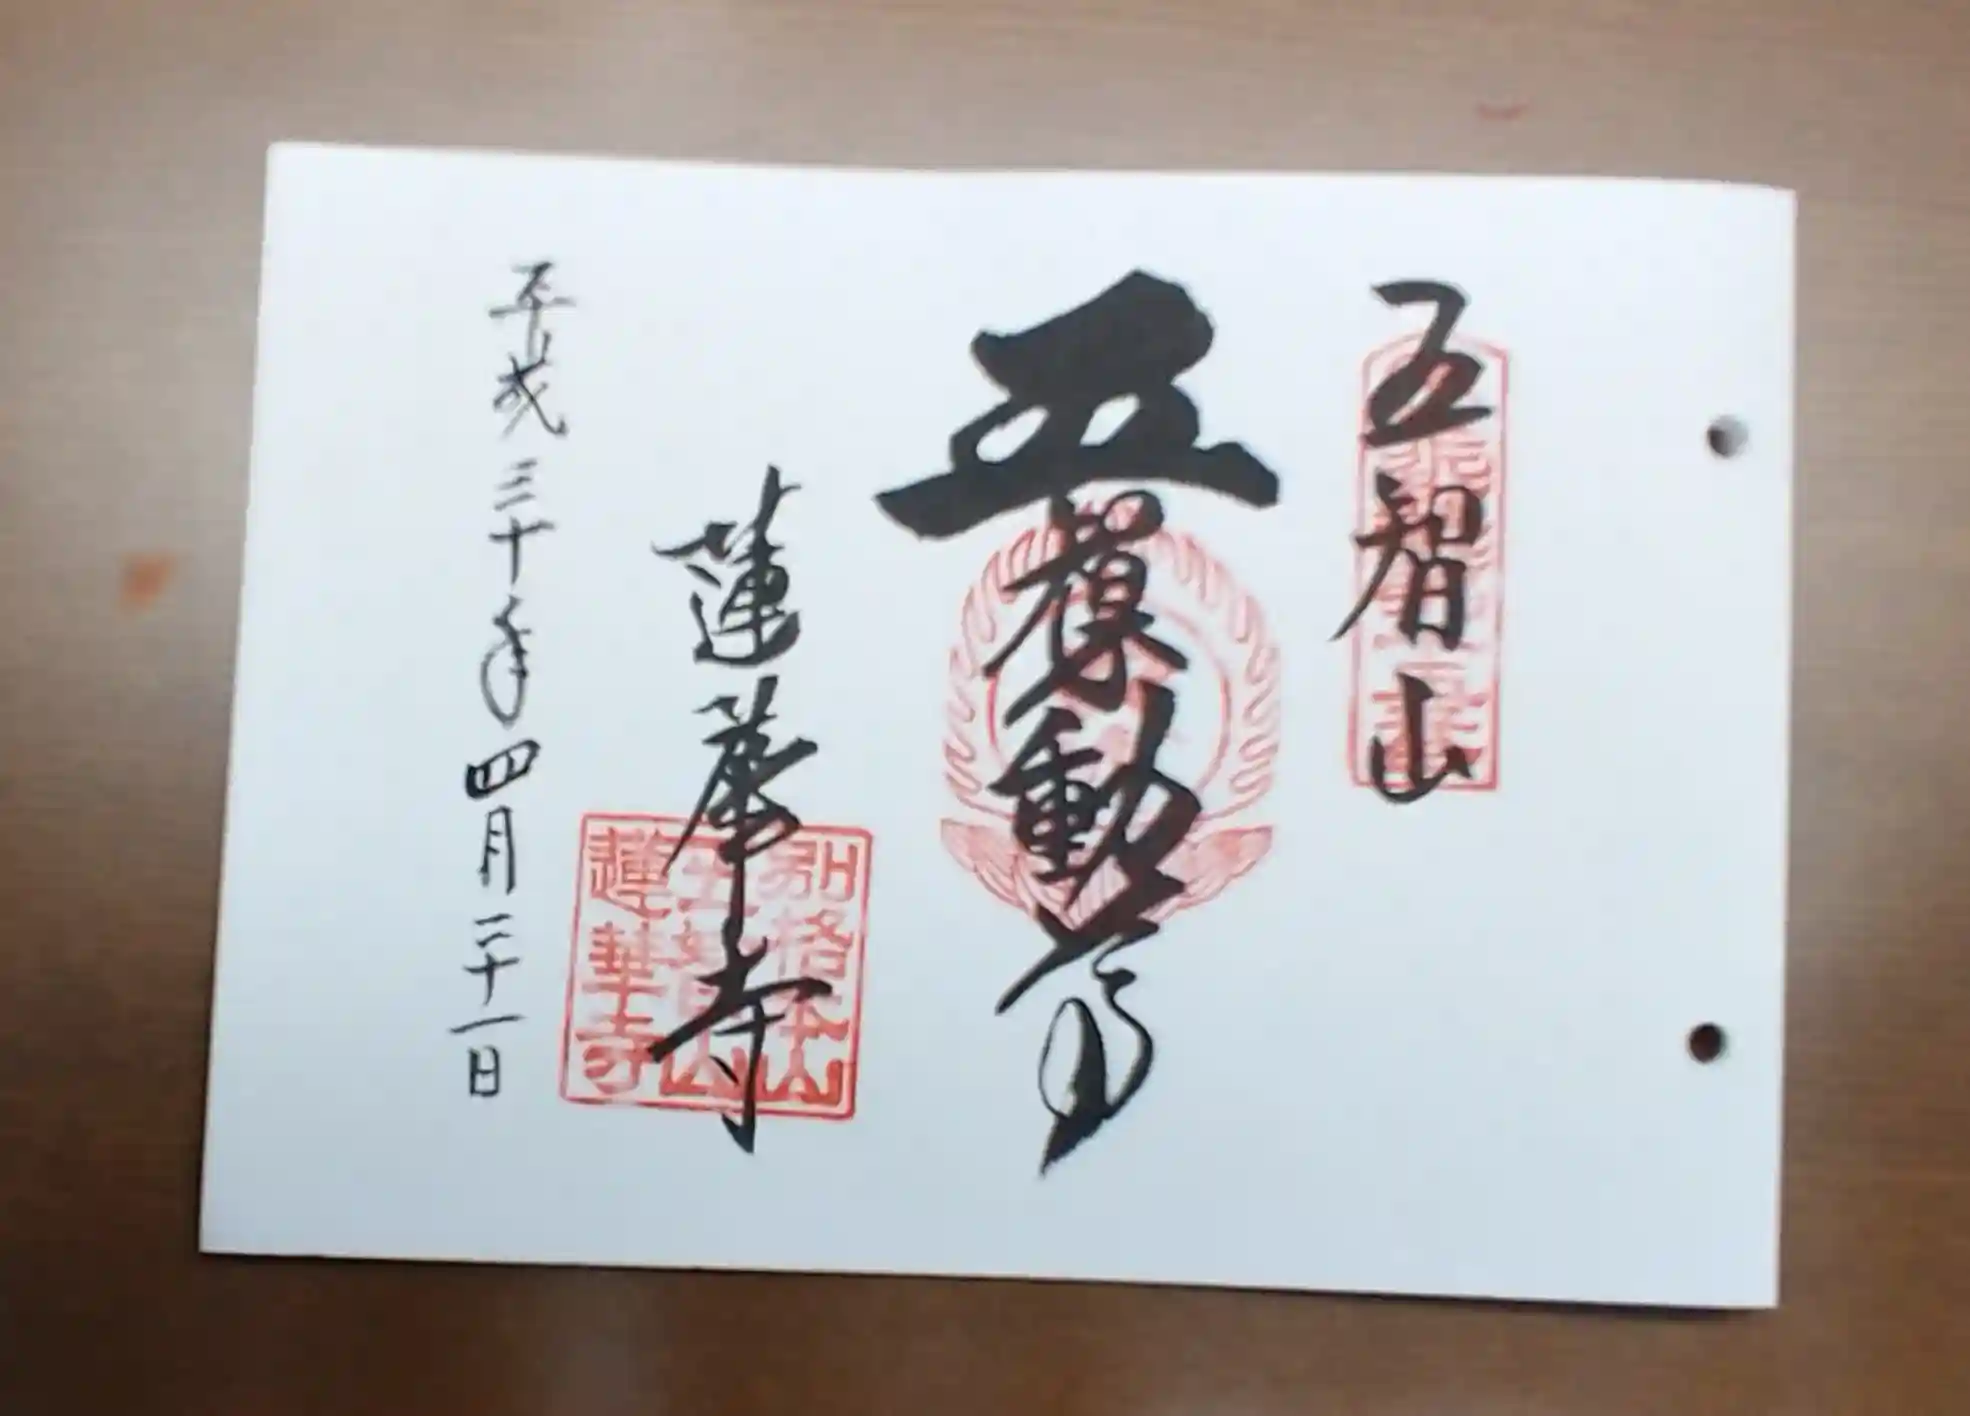 五智山
五動尊
蓮華寺
平成三十年四月二十一日
別格本山
五智山
蓮華寺